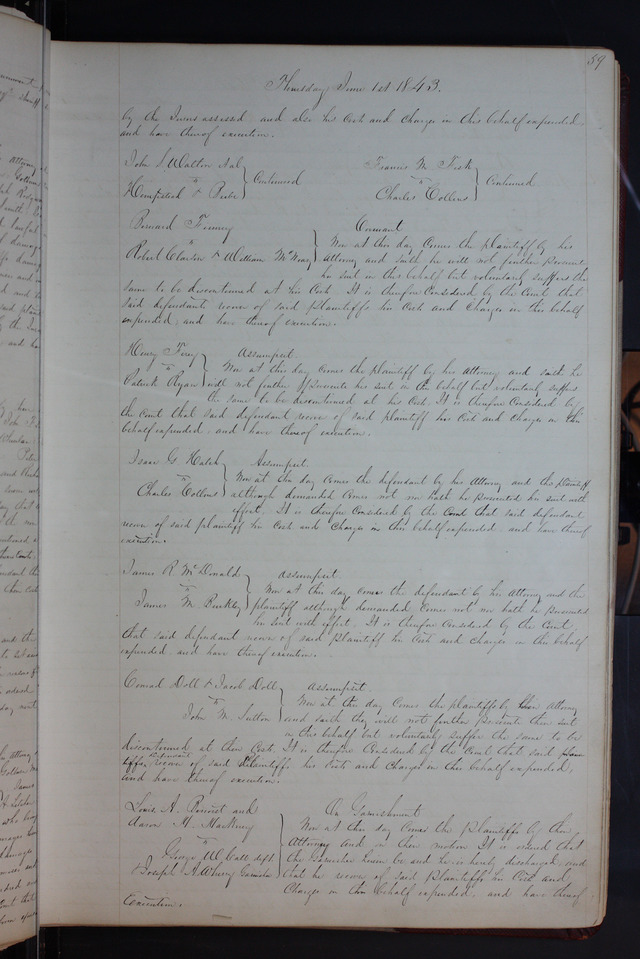 59
Thursday June 1st 1843.
by the Jurors assessed and also his Costs and Charges in this behalf expended
and have thereof execution.
John L Walton Adl
vs } Continued
Hempstead &
Francis M. Fisk
vs } Continued
Charles Collins
Bernard
vs
Robert Clauden & William McNeary
Covenant
Now at this day Comes the plaintiff by his
Attorney and saith he will not further prosecute
his suit in this behalf but voluntarily suffers the
same to be discontinued at his Cost. It is therefore Considered by the Court that
said defendants recover of said plaintiff his Costs and Charges in this behalf
expended, and have thereof execution.
Henry
vs
Patrick Ryan
Assumpsit
Now at this day comes the plaintiff by his Attorney and saith he
will not further prosecute his suit in this behalf but voluntarily suffers
the same to be discontinued at his Cost. It is therefore Considered by
the Court that said defendant recover of said plaintiff his Costs and Charges in this
behalf expended, and have thereof execution.
Isaac G Hatch
vs
Charles Collins
Assumpsit.
Now at this day comes the defendant by his Attorney and the plaintiff
although demanded Comes not nor hath he prosecuted his suit with
effect. It is therefore Considered by the Court that said defendant
recover of said plaintiff his Costs and Charges in this behalf expended, and have thereof
execution.
James R. McDonald
vs
James M. Buckley
Assumpsit.
Now at this day comes the defendant by his Attorney and the
plaintiff although demanded Comes not nor hath he prosecuted
his suit with effect. It is therefore Considered by the Court
that said defendant recover of said plaintiff his Costs and Charges in this behalf
expended, and have thereof execution.
Conrad Doll & Jacob Doll
vs
John M. Sutton
Assumpsit.
Now at this day Comes the plaintiffs by their Attorney
and saith they will not further prosecute their suit
in this behalf but voluntarily suffer the same to be
discontinued at their Costs. It is therefore Considered by the Court that said plain-
tiffs defendant recover of said plaintiffs his Costs and Charges in this behalf expended,
and have thereof execution.
Louis A. Benoist and
Aaron H. Hackney
vs
George W. Call deft
& Joseph A. Wherry Garnishee
On Garnishment
Now at this day Comes the Plaintiffs by their
Attorney and on their motion It is ordered that
the Garnishee herein be and he is hereby discharged, and
that he recover of said Plaintiffs his Costs and
Charges in this behalf expended, and have thereof
execution.